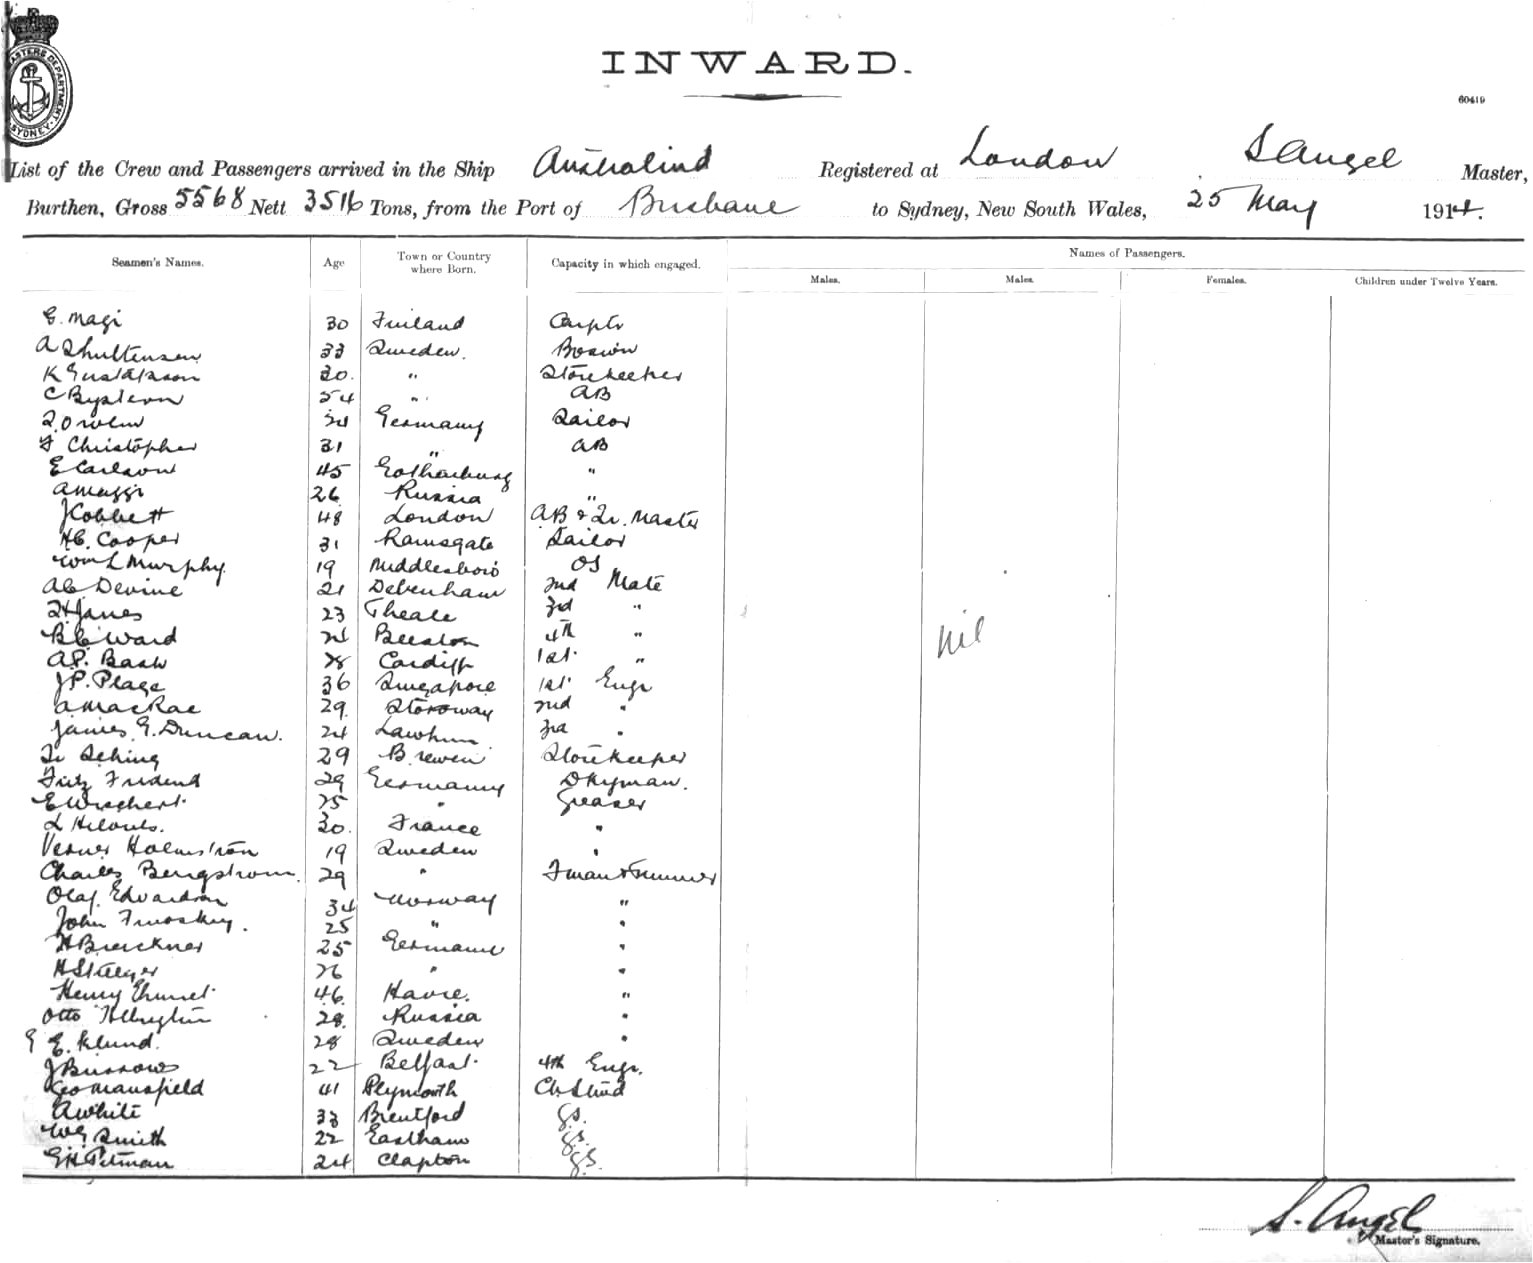 MASTERS DEPARTMENT
SYDNEY
INWARD.
60419
List of the Crew and Passengers arrived in the Ship Australind Registered at London, S Angel Master,
Burthen, Gross 5568 Nett 3516 Tons, from the Port of Brisbane to Sydney, New South Wales, 25 May 1914.
Names of Passengers.
Seamen's Names. Age Town or Country where Born. Capacity in which engaged. Males. Males. Females. Children under Twelve Years.
E. Magi 30 Finland Carptr
A 33 Sweden. Boswn
K Gustafsson 30. " Storekeeper
C 54 " AB
Germany Sailor
F Christopher 31 " AB
E Carlson 45 Gothenburg "
A Maggi 26 Russia "
J Cobbett 48 London AB & Qr. Master
H C. Cooper 31 Ramsgate Sailor
Wm L Murphy. 19 Middlesboro OS
A C Devine 21 Debenham 2nd Mate
Janes 23 Theale 3rd "
B C Ward 24 Beeston 4th "
nil
A P. Bash 28 Cardiff 1st "
J P. Plage 36 Singapore 1st Engr
A MacRae 29. Stornoway 2nd "
James G. Duncan. 24 3rd "
29 Bremen Storekeeper
Fritz 29 Germany Dkyman.
E Wiechert 25 " Greaser
L 30. France "
Verner Holmström 19 Sweden "
Charles Bengstrom. 29 " Fman & Trimmer
Olaf Edvardson 34 Norway "
John 25 " "
H Brueckner 25 Germany "
H Staeger 26 " "
Henry 46. Havre. "
Otto 28. Russia "
E. Klund. 28 Sweden "
J Burrows 22 Belfast 4th Engr.
Geo Mansfield 41 Plymouth Ch. Stwd
A White 33 Brentford G.S.
W G Smith 22 Eastham G.S.
G H Pitman 24 Clapton G.S.
S. Angel
Master's Signature.